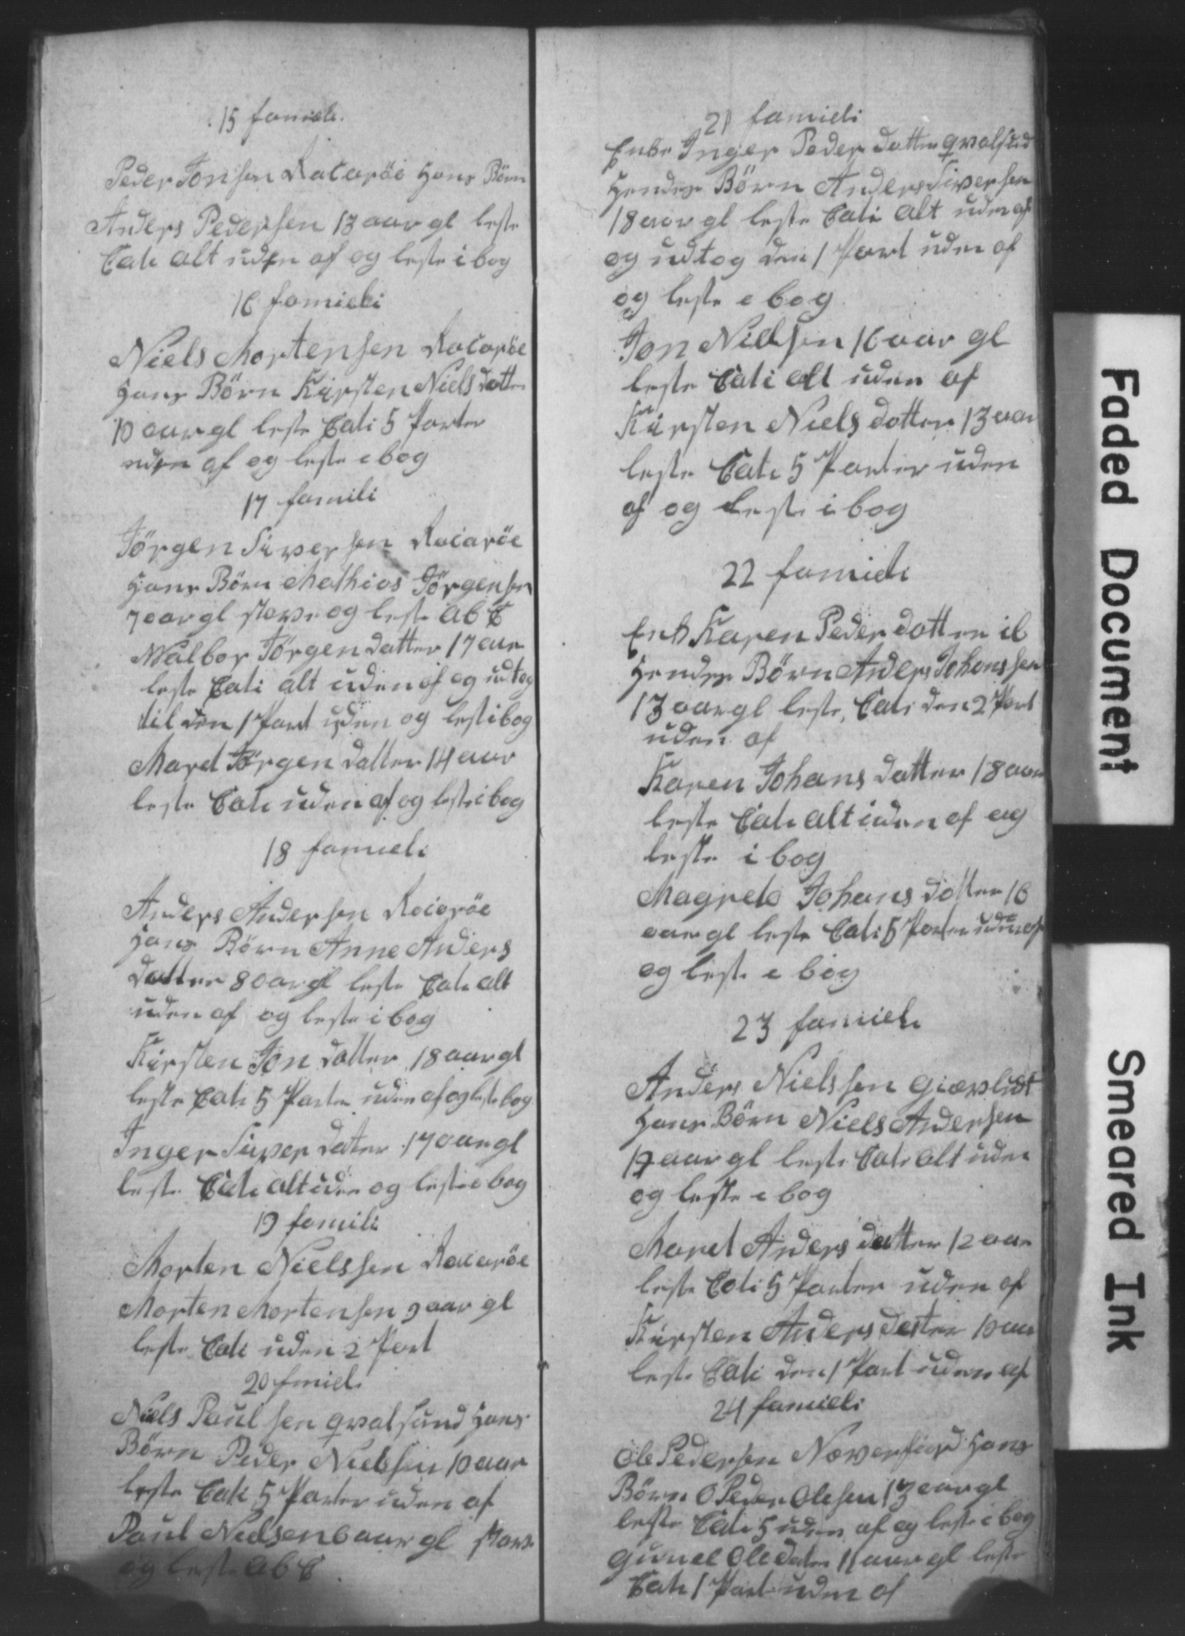 15 famieli
Peder Jonssen Racaröe Hans Börn
Anders Pederssen 13 aar gl leste
Cate alt uden af og leste i bog
16 famieli
Niels Mortenssen Racaröe
Hans Börn Kirsten Niels datter
10 aar gl leste Cati 5 Parter
uden af og leste i bog
17 famili
Jörgen Siverssen Racaröe
Hans Börn Mathias Jörgenssen
7 aar gl stave og leste ABC
Malbor Jörgen datter 17 aar
leste Cati alt uden af og udtog
til den 1 Part uden og lest i bog
Maret Jörgen datter 14 aar
leste Cate uden af og leste i bog
18 famieli
Anders Anderssen Racaröe
Hans Börn Anne Anders
datter 8 aar gl leste Cate alt
uden af og leste i bog
Kirsten Jon datter 18 aar gl
leste Cate 5 Parter uden af og leste bog
Inger Siver dater 17 aar gl
leste Cate alt uden og leste i bog
19 famili
Morten Nielssen Racaröe
Morten Mortenssen 9 aar gl
leste Cate uden 2 Part
20 fmieli
Niels Paulssen qvalsund Hans
Börn Peder Nielssen 10 aar
leste Cate 5 Parter uden af
Paul Nielsen 6 aar gl stave
og leste ABC
21 famieli
Enke Inger Peder datter qvalsund
Hendes Börn Anders Siverssen
18 aar gl leste Cati alt uden af
og udtog den 1 Part uden af
og leste i bog
Jon Nielssen 16 aar gl
leste Cati alt uden af
Kirsten Niels datter 13 aar
leste Cate 5 Parter uden
af og leste i bog
22 famieli
Enk Karen Peder datter ib
Hendes Börn Anders Johanssen
13 aar gl leste Cate den 2 Part
uden af
Karen Johans datter 18 aar
leste Cate alt uden af og
leste i bog
Magrete Johans datter 16
aar gl leste Cati 5 Parter uden af
og leste i bog
23 famieli
Anders Nielssen
Hans Börn Niels Anderssen
19 aar gl leste Cate alt uden
og leste i bog
Maret Anders datter 12 aar
leste Cati 5 Parter uden af
Kirsten Anders dater 10 aar
leste Cati den 1 Part uden af
24 famieli
Ole Pederssen Naverfiord Hans
Börn O Peder Olesen 13 aar gl
leste Cate 5 uden af og leste i bog
Ole dater 11 aar gl leste
Cate 1 Part uden af
Faded Document
Smeared Ink